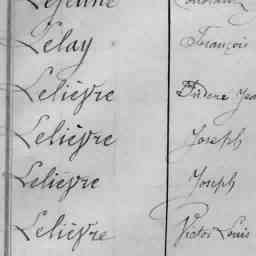 Lejeune
Lelay François
Lelièvre Jea
Lelièvre Joseph
Lelièvre Joseph
Lelièvre Victor Louis